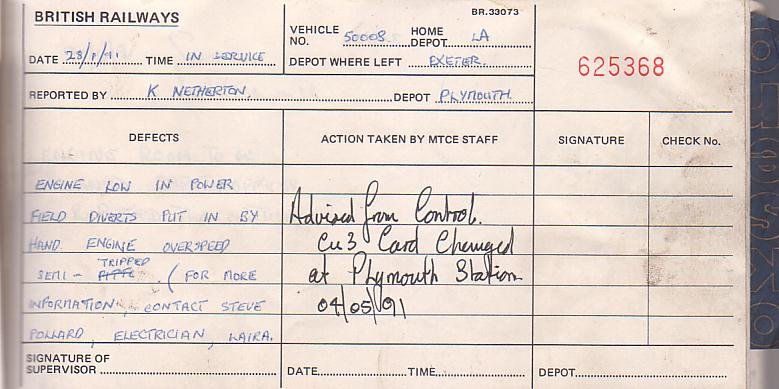 BRITISH RAILWAYS
BR.33073
VEHICLE NO. 50008 HOME DEPOT LA
DATE 28/1/91. TIME IN SERVICE
DEPOT WHERE LEFT EXETER.
625368
REPORTED BY K NETHERTON. DEPOT PLYMOUTH
DEFECTS
ACTION TAKEN BY MTCE STAFF
SIGNATURE
CHECK No.
ENGINE LOW IN POWER
FIELD DIVERTS PUT IN BY
HAND. ENGINE OVERSPEED
SEMI - TRIPPED. (FOR MORE
INFORMATION, CONTACT STEVE
POLLARD, ELECTRICIAN, LAIRA.
Advised from Control.
Cu3 Card Changed
at Plymouth Station
04/05/91
SIGNATURE OF SUPERVISOR
DATE
TIME
DEPOT